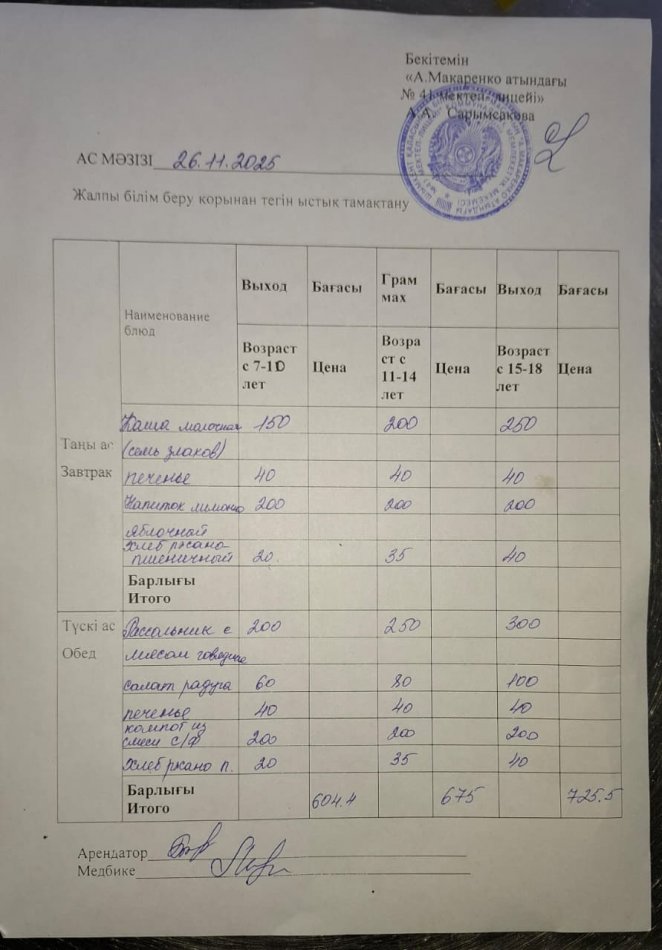 Бекітемін
«А.Макаренко атындағы
№ 41 мектеп-лицейі»
А.А. Сарымсакова
АС МӘЗІЗІ 26.11.2025
Жалпы білім беру қорынан тегін ыстық тамақтану
Наименование блюд Выход Бағасы Грам мах Бағасы Выход Бағасы
Возраст с 7-10 лет Цена Возраст с 11-14 лет Цена Возраст с 15-18 лет Цена
Таңы ас Завтрак
Каша молочная 150 200 250
(семь злаков)
печенье 40 40 40
Напиток лимонно 200 200 200
яблочной
Хлеб ржано-пшеничный 20. 35 40
Барлығы Итого
Түскі ас Обед
Рассольник с 200 250 300
мясом говядина
салат радуга 60 80 100
печенье 40 40 40
компот из смеси с/ф 200 200 200
Хлеб ржано п. 20 35 40
Барлығы Итого 604.4 675 725.5
Арендатор
Медбике